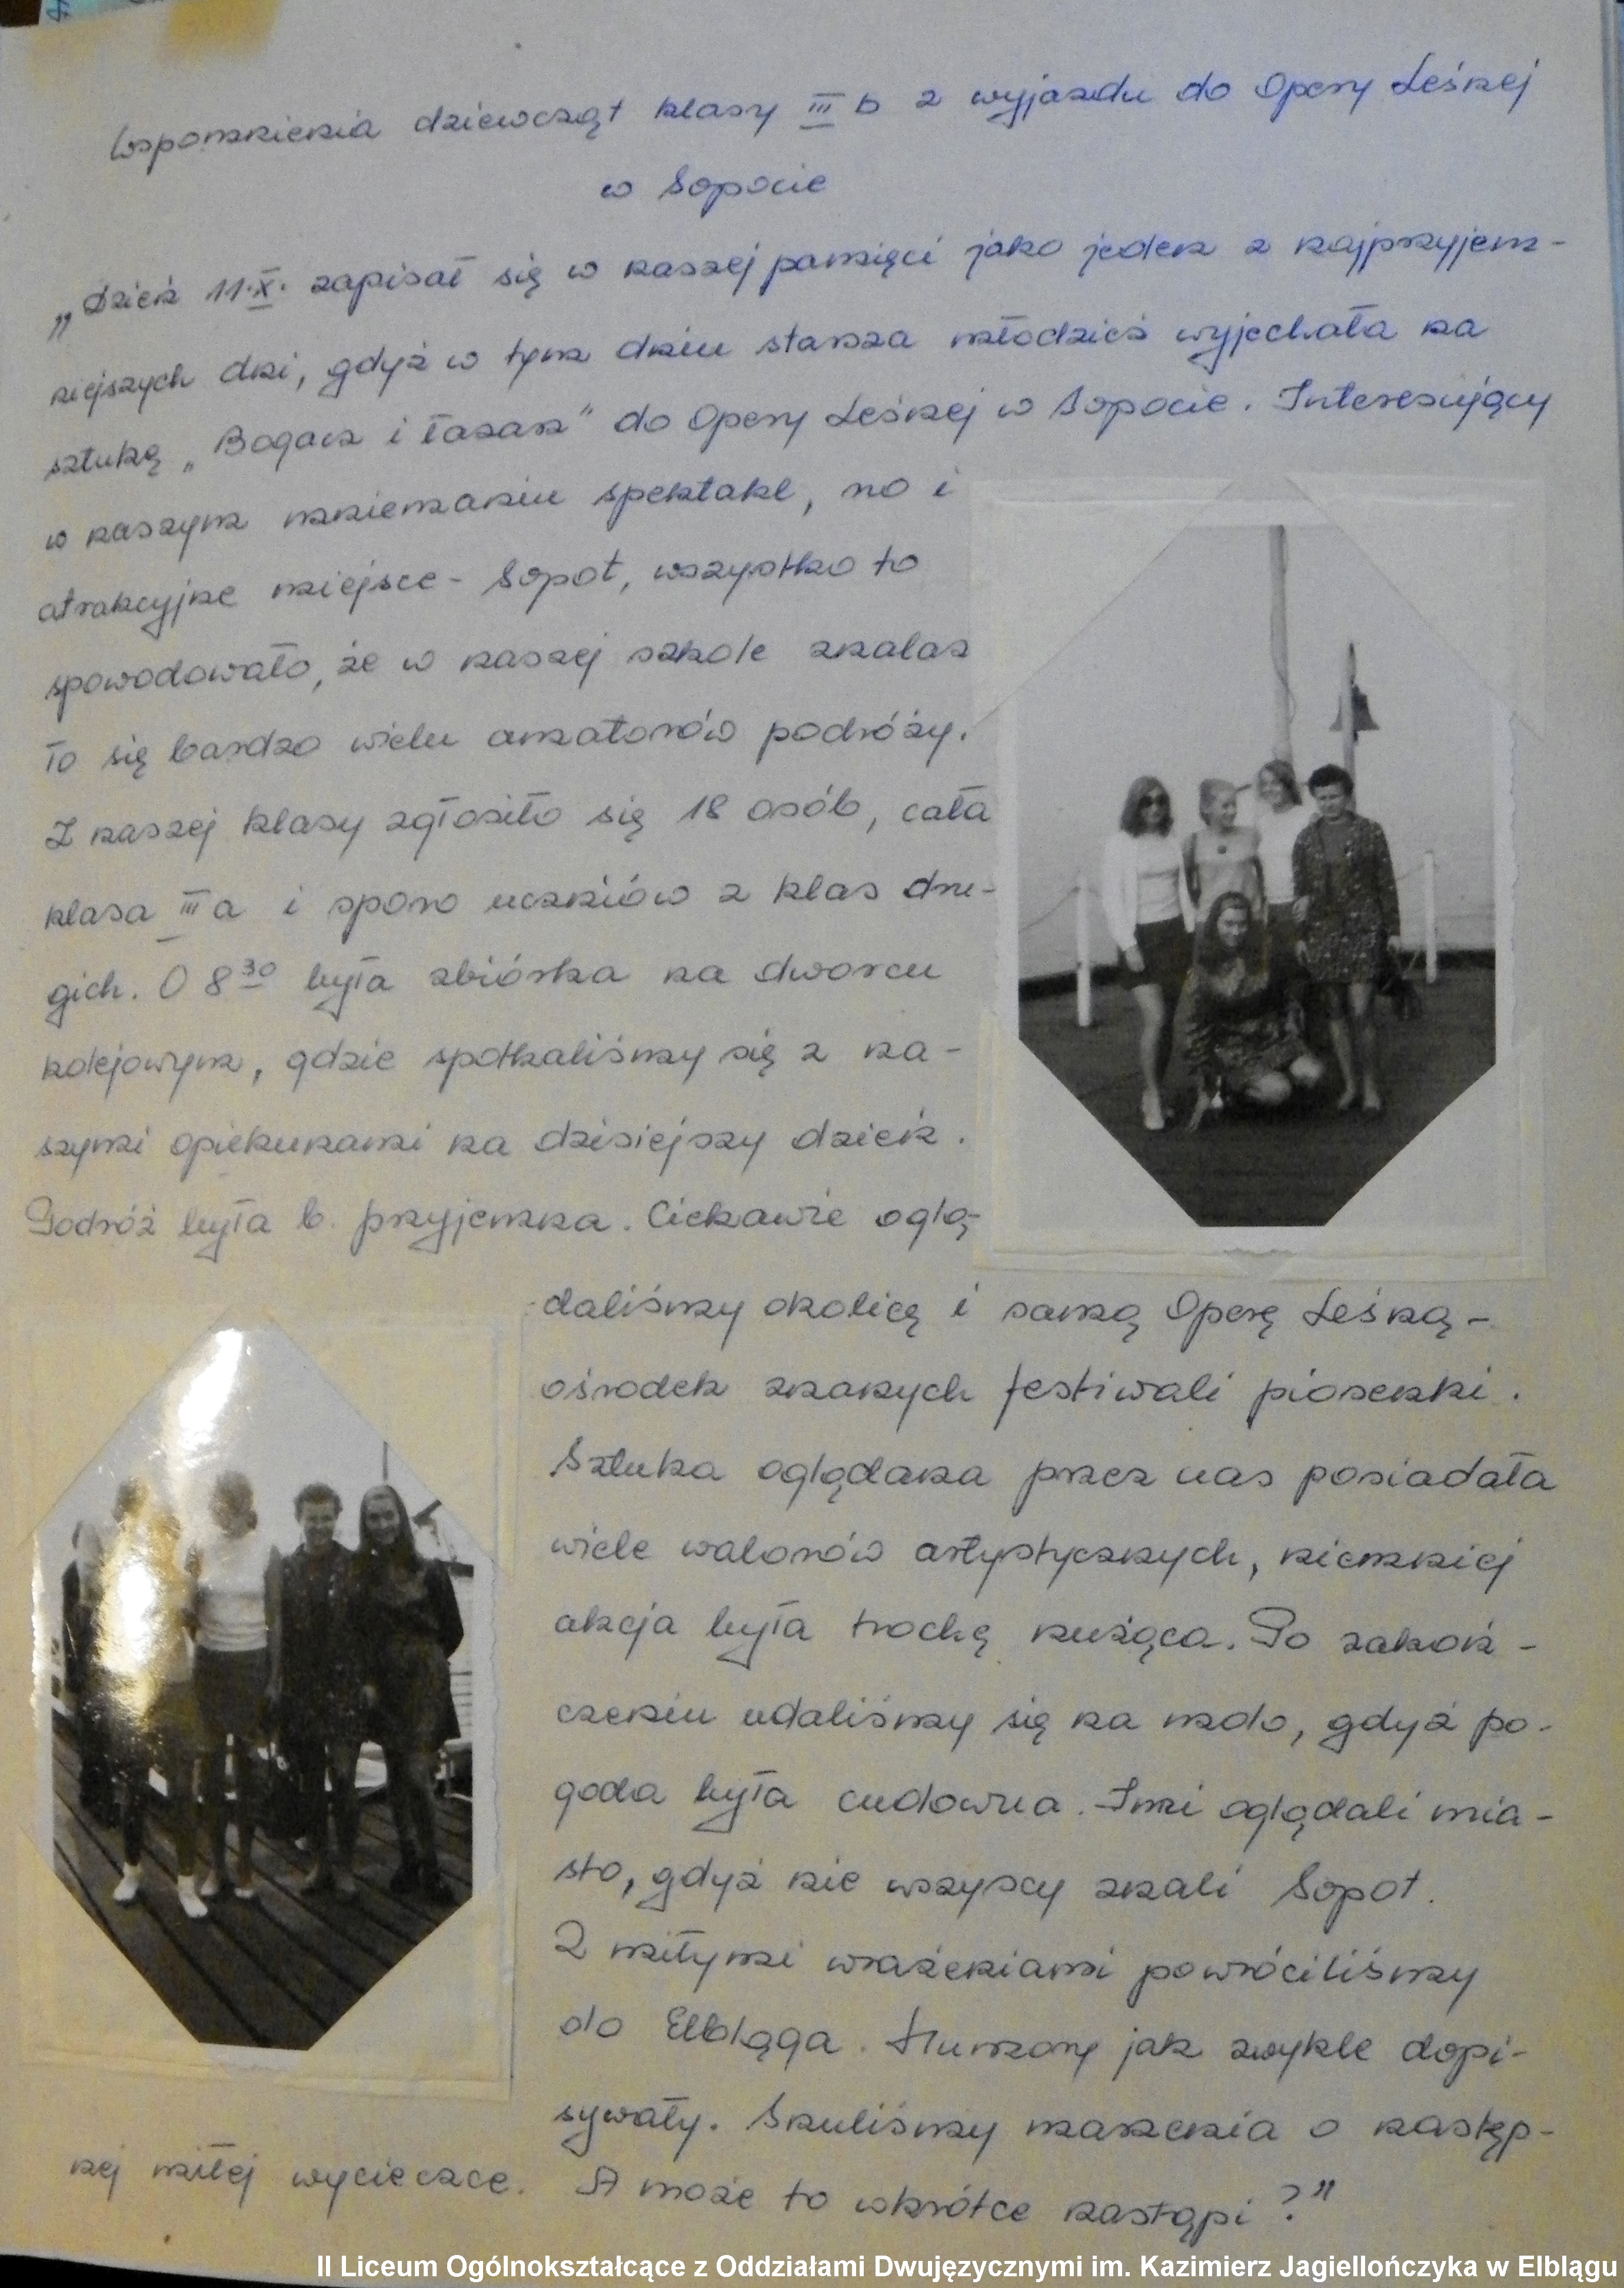 Wspomnienia dziewcząt klasy III b z wyjazdu do Opery Leśnej
w Sopocie
„Dzień 11.X. zapisał się w naszej pamięci jako jeden z najprzyjem-
niejszych dni, gdyż w tym dniu starsza młodzież wyjechała na
sztukę „Bogacz i łazarz" do Opery Leśnej w Sopocie. Interesujący
w naszym mniemaniu spektakl, no i
atrakcyjne miejsce - Sopot, wszystko to
spowodowało, że w naszej szkole znalaz
ło się bardzo wielu amatorów podróży.
Z naszej klasy zgłosiło się 18 osób, cała
klasa III a i sporo uczniów z klas dru-
gich. O 8 30 była zbiórka na dworcu
kolejowym, gdzie spotkaliśmy się z na-
szymi opiekunami na dzisiejszy dzień.
Podróż była b. przyjemna. Ciekawie oglą-
daliśmy okolicę i samą Operę Leśną -
ośrodek znanych festiwali piosenki.
Sztuka oglądana przez nas posiadała
wiele walorów artystycznych, niemniej
akcja była trochę nużąca. Po zakoń-
czeniu udaliśmy się na molo, gdyż po-
goda była cudowna. Inni oglądali mia-
sto, gdyż nie wszyscy znali Sopot.
Z miłymi wrażeniami powróciliśmy
do Elbląga. Humory jak zwykle dopi-
sywały. Snuliśmy marzenia o następ-
nej miłej wycieczce. A może to wkrótce nastąpi?"
II Liceum Ogólnokształcące z Oddziałami Dwujęzycznymi im. Kazimierz Jagiellończyka w Elblągu